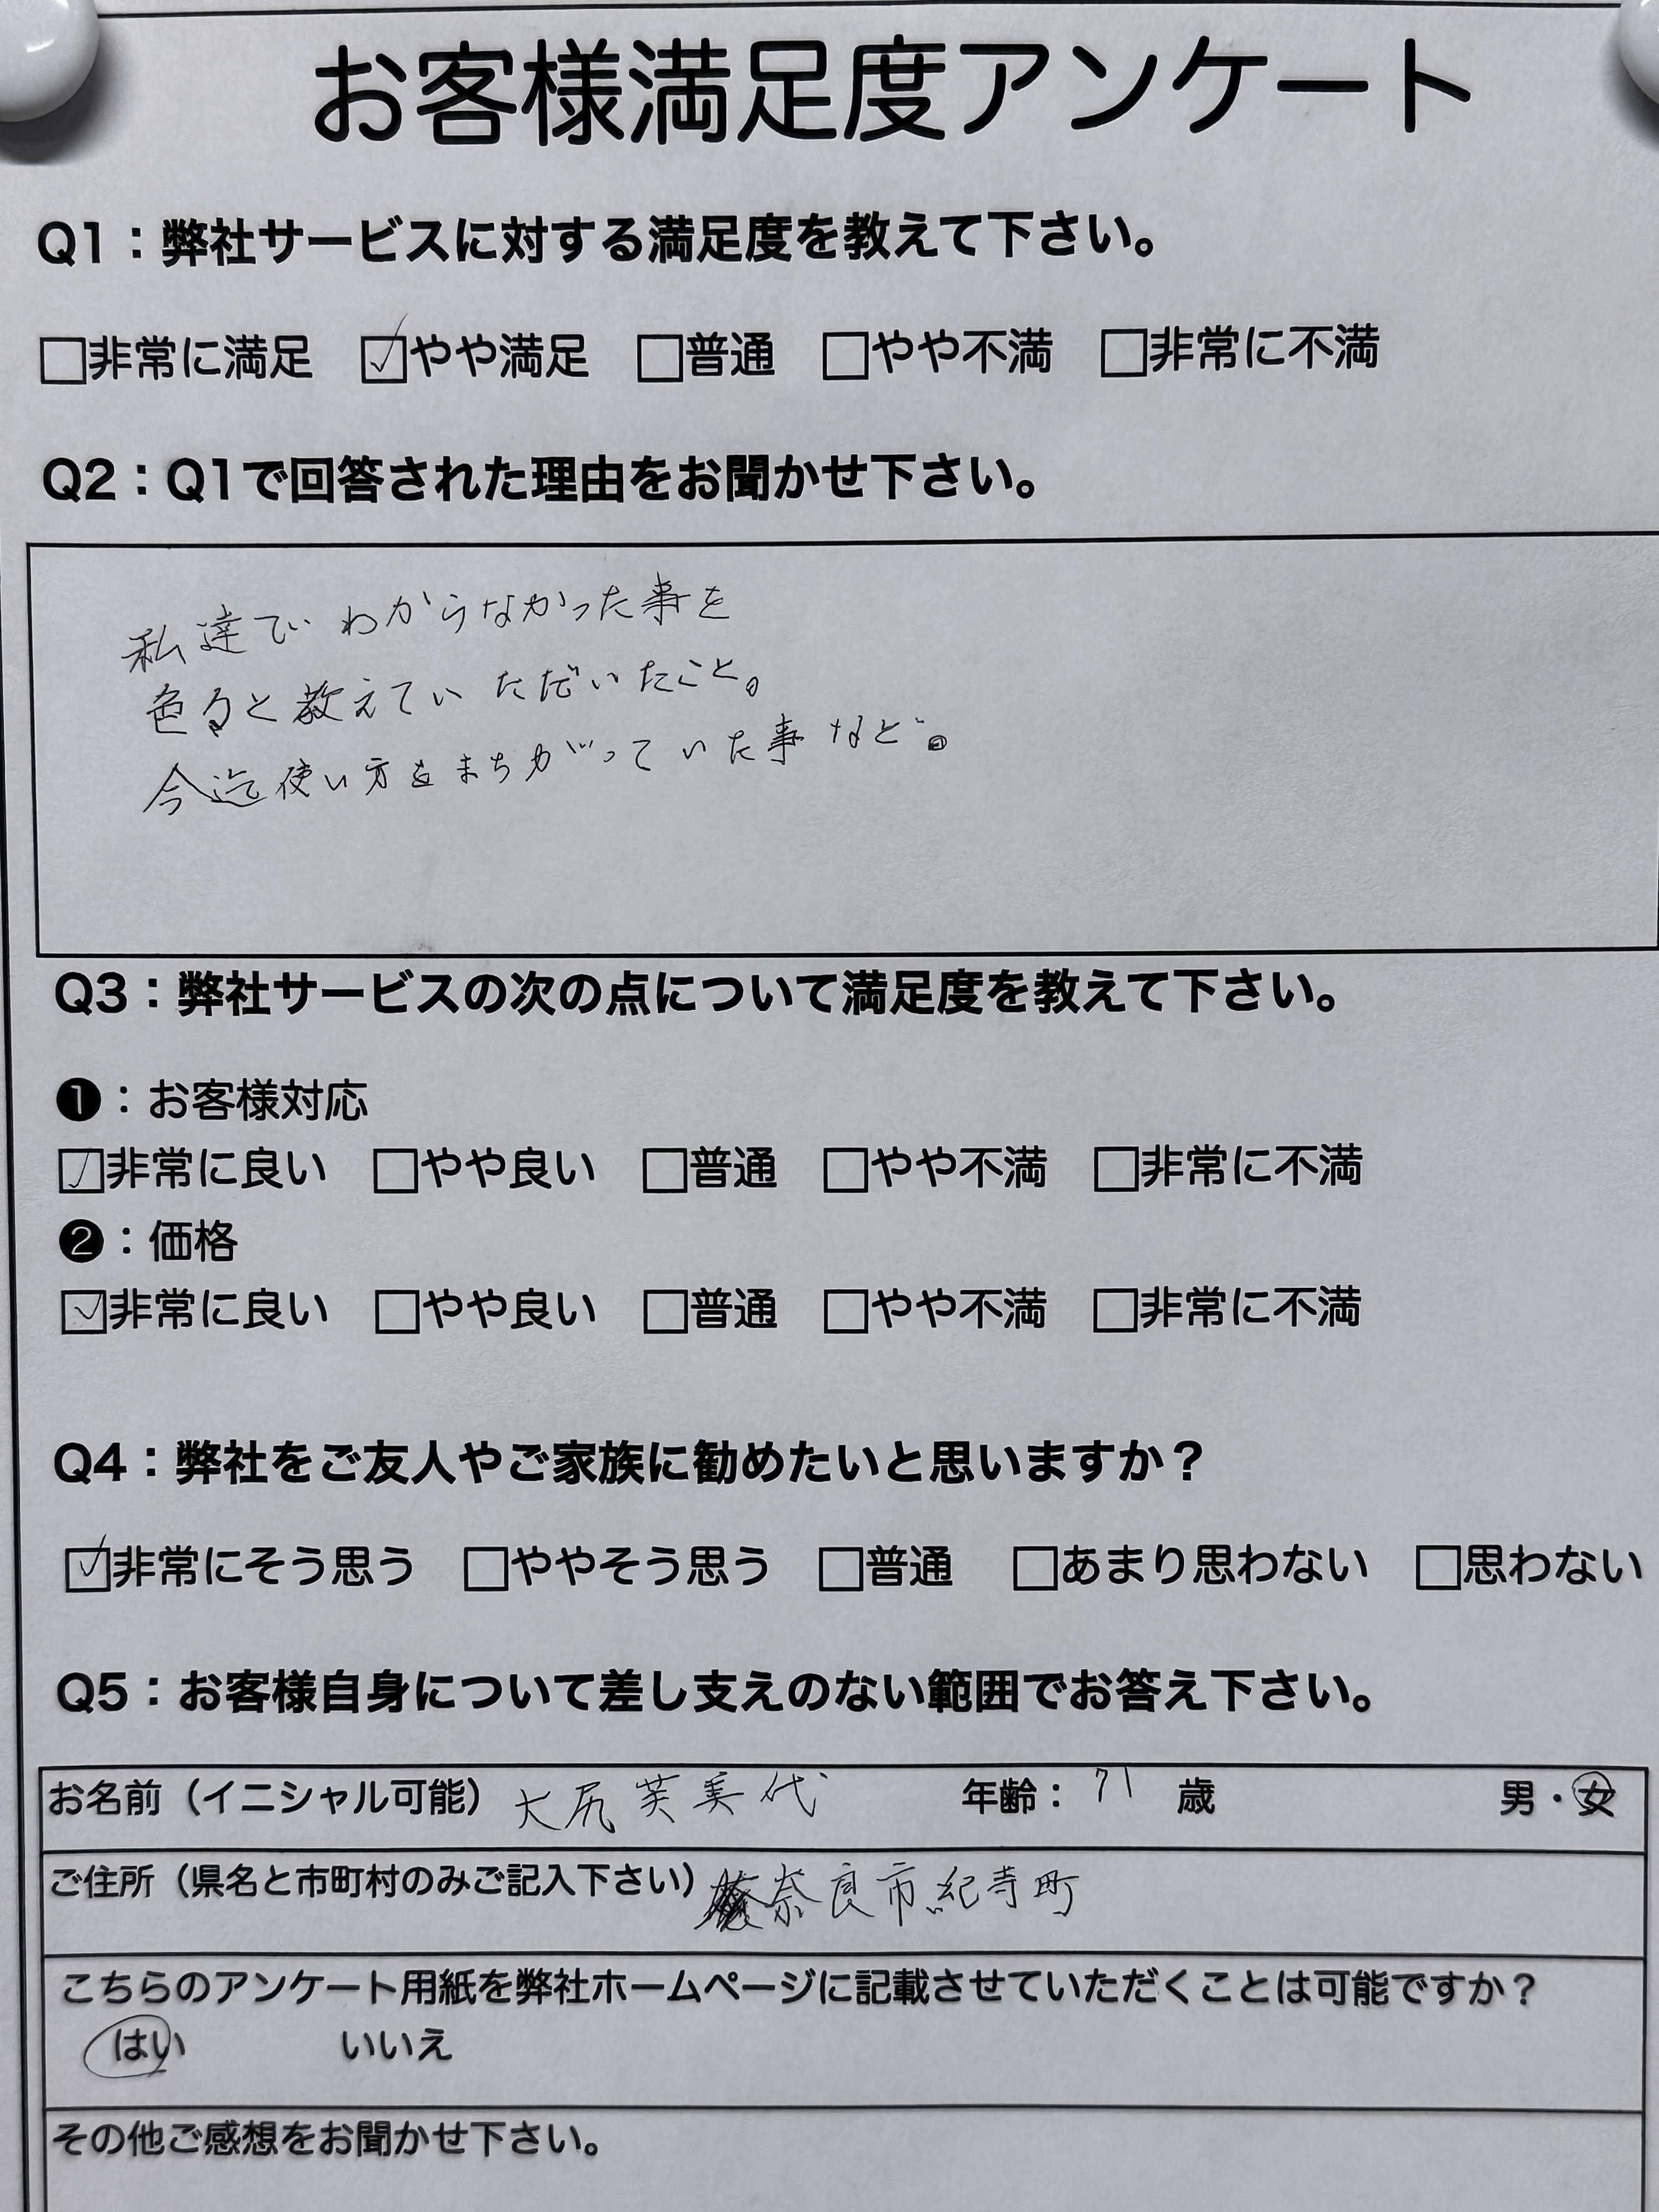 お客様満足度アンケート
Q1：弊社サービスに対する満足度を教えて下さい。
□非常に満足 ☑やや満足 □普通 □やや不満 □非常に不満
Q2：Q1で回答された理由をお聞かせ下さい。
私達で わからなかった事を
色々と教えていただいたこと。
今迄使い方をまちがっていた事など。
Q3：弊社サービスの次の点について満足度を教えて下さい。
❶：お客様対応
☑非常に良い □やや良い □普通 □やや不満 □非常に不満
❷：価格
☑非常に良い □やや良い □普通 □やや不満 □非常に不満
Q4：弊社をご友人やご家族に勧めたいと思いますか？
☑非常にそう思う □ややそう思う □普通 □あまり思わない □思わない
Q5：お客様自身について差し支えのない範囲でお答え下さい。
お名前（イニシャル可能） 大尻 芙美代 年齢： 71 歳 男・女
ご住所（県名と市町村のみご記入下さい） 奈良市紀寺町
こちらのアンケート用紙を弊社ホームページに記載させていただくことは可能ですか？
はい いいえ
その他ご感想をお聞かせ下さい。